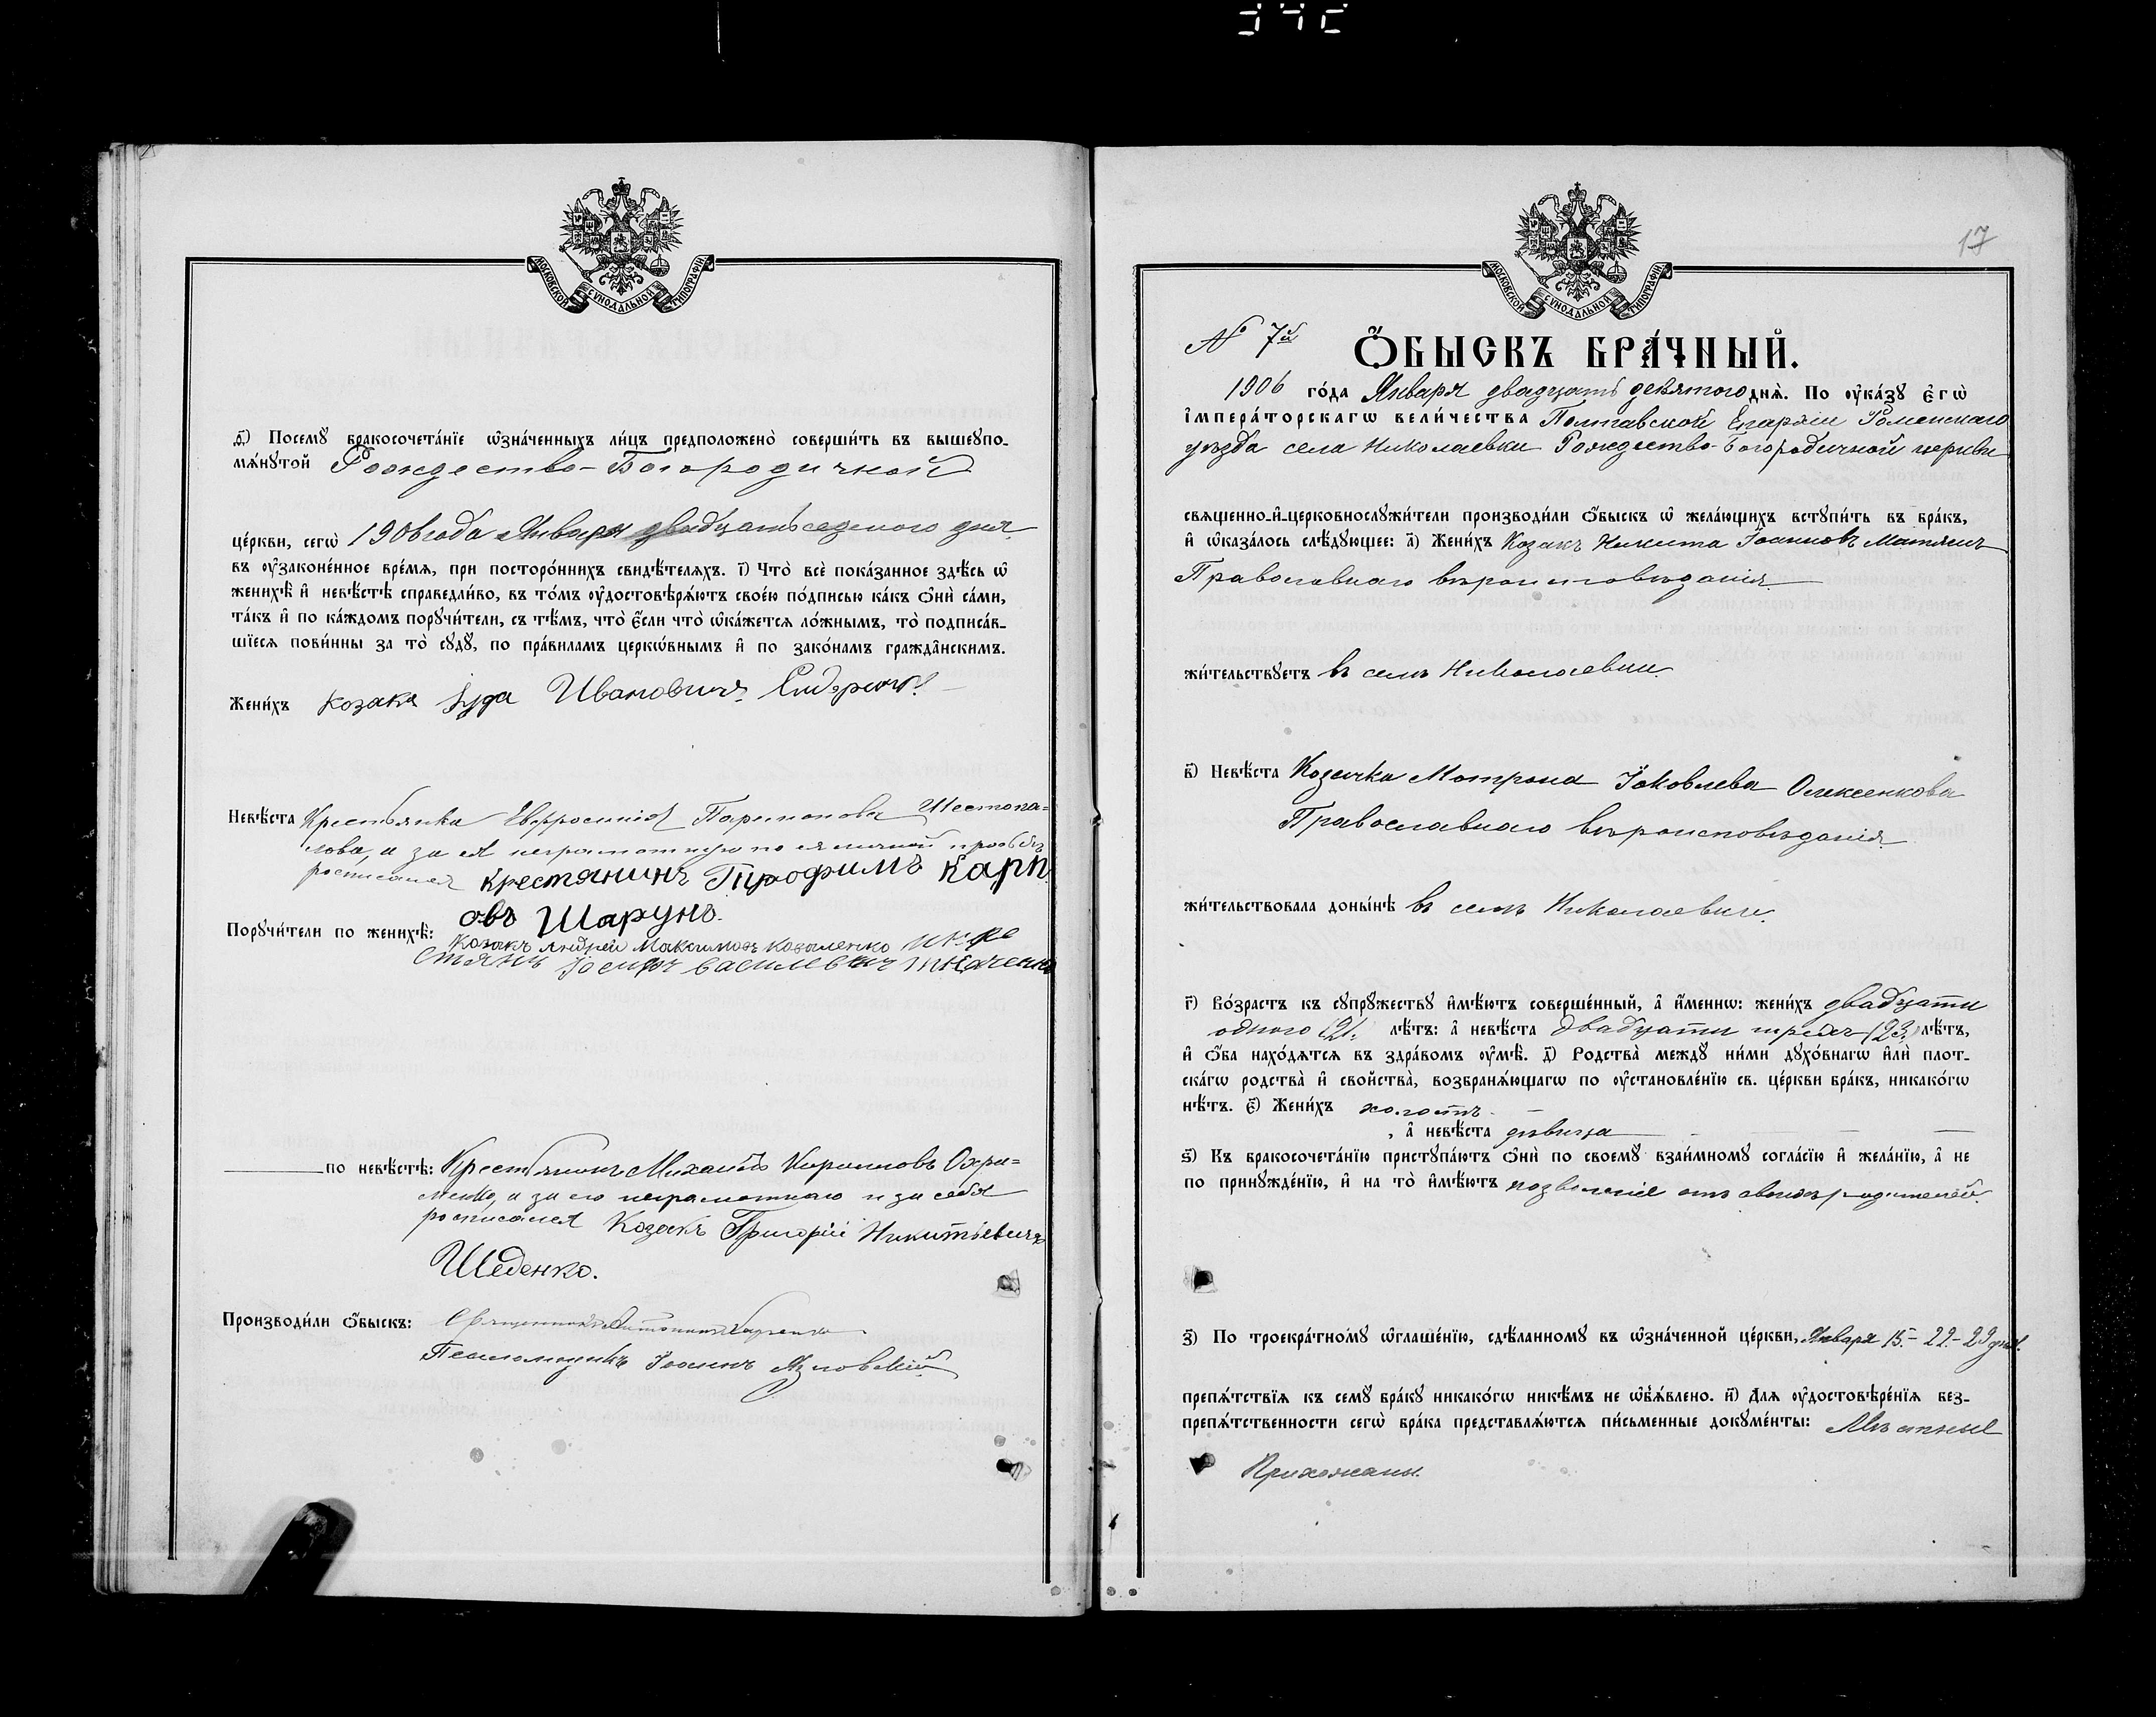 МОСКОВСКОЙ СѴНОДАЛЬНОЙ ТИПОГРАФІИ
д҃) Посемꙋ бракосочета́нїе ѡ҆зна́ченныхъ ли́цъ предположено̀ соверши́ть въ вышеꙋпо-
мѧ́нꙋтой Рождество-Богородичной
це́ркви, сегѡ̀ 1906 года Января двадцать седьмого дня
въ ᲂу҆законе́нное вре́мѧ, при посторо́ннихъ свидѣ́телѧхъ. і҃) Что̀ всѐ пока́занное здѣ́сь ѡ҆
женихѣ̀ и҆ невѣ́стѣ справедли́во, въ то́мъ ᲂу҆достовѣрѧ́ютъ свое́ю по́дписью ка́къ ѻ҆нѝ са́ми,
та́къ и҆ по ка́ждомъ порꙋчи́тели, съ тѣ́мъ, что̀ є҆́сли что̀ ѡ҆ка́жетсѧ ло́жнымъ, то̀ подписа́в-
шїесѧ пови́нны за то̀ сꙋдꙋ̀, по пра́виламъ церко́внымъ и҆ по зако́намъ гражда̂нскимъ.
Жени́хъ козакъ Іуда Ивановичъ
Невѣ́ста Крестьянка Евфросинія Парѳенова Шестопа=
лова, а за ея неграмотную по ея личной прозьбѣ
росписался крестянинъ Трофимъ Карп
овъ Шарунъ.
Порꙋчи́тели по женихѣ̀: Козакъ Андрей Максимовъ Коваленко и кре
стянъ Іосифъ Василевичъ Ткаченко
по невѣ́стѣ: Крестьянинъ Михаилъ Кириловъ Охри=
менко, а за его неграмотнаго и за себя
росписался Козакъ Григорій Никитьевичъ
Шеденко.
Производи́ли ѻ҆́быскъ: Священникъ
Псаломщикъ Іоаннъ
17
МОСКОВСКОЙ СѴНОДАЛЬНОЙ ТИПОГРАФІИ
№ 7й
Ѻ҆́БЫСКЪ БРА́ЧНЫЙ.
1906 го́да Января двадцать девятого днѧ̀. По ᲂу҆ка́зꙋ є҆гѡ̀
і҆мпера́торскагѡ вели́чества Полтавской Епархіи Роменскаго
уѣзда села Николаевки Рождество-Богородичной церкви
свѧщенно-и҆-церковнослꙋжи́тели производи́ли ѻ҆́быскъ ѡ҆ жела́ющихъ встꙋпи́ть въ бра́къ,
и҆ ѡ҆каза́лось слѣ́дꙋющее: а҃) Жени́хъ Козакъ Никита Іоанновъ Матяшъ
Православнаго вѣроисповѣданія
жи́тельствꙋетъ въ селѣ Николаевки.
в҃) Невѣ́ста Козачка Матрона Іаковлева Олексенкова
Православнаго вѣроисповѣданія.
жи́тельствовала доны́нѣ въ селѣ Николаевки.
г҃) Во́зрастъ къ сꙋпрꙋ́жествꙋ и҆мѣ́ютъ соверше́нный, а҆ и҆́меннѡ: жени́хъ двадцати
одного (21. лѣ́тъ: а҆ невѣ́ста двадцати трехъ (23) лѣ́тъ,
и҆ ѻ҆́ба нахо́дѧтсѧ въ здра́вомъ ᲂу҆мѣ̀. д҃) Родства̀ междꙋ̀ ни́ми дꙋхо́внагѡ и҆лѝ плот-
ска́гѡ родства̀ и҆ сво́йства̀, возбранѧ́ющагѡ по ᲂу҆становле́нїю св. це́ркви бра́къ, никако́гѡ
нѣ́тъ. є҃) Жени́хъ холостъ
, а҆ невѣ́ста дѣвица
ѕ҃) Къ бракосочета́нїю пристꙋпа́ютъ ѻ҆нѝ по своемꙋ̀ взаи́мномꙋ согла́сїю и҆ жела́нїю, а҆ не
по принꙋжде́нїю, и҆ на то̀ и҆мѣ́ютъ позволеніе отъ своихъ родителей.
з҃) По троекра́тномꙋ ѡ҆глаше́нїю, сдѣ́ланномꙋ въ ѡ҆зна́ченной це́ркви, Января 15.- 22.- 29 дня.
препѧ́тствїѧ къ семꙋ̀ бра́кꙋ никако́гѡ никѣ́мъ не ѡ҆б̾ѧ́влено. и҃) Длѧ ᲂу҆достовѣре́нїѧ без-
препѧ́тственности сегѡ̀ бра́ка представлѧ́ютсѧ пи́сьменные докꙋме́нты: Мѣстные
Прихожаны.